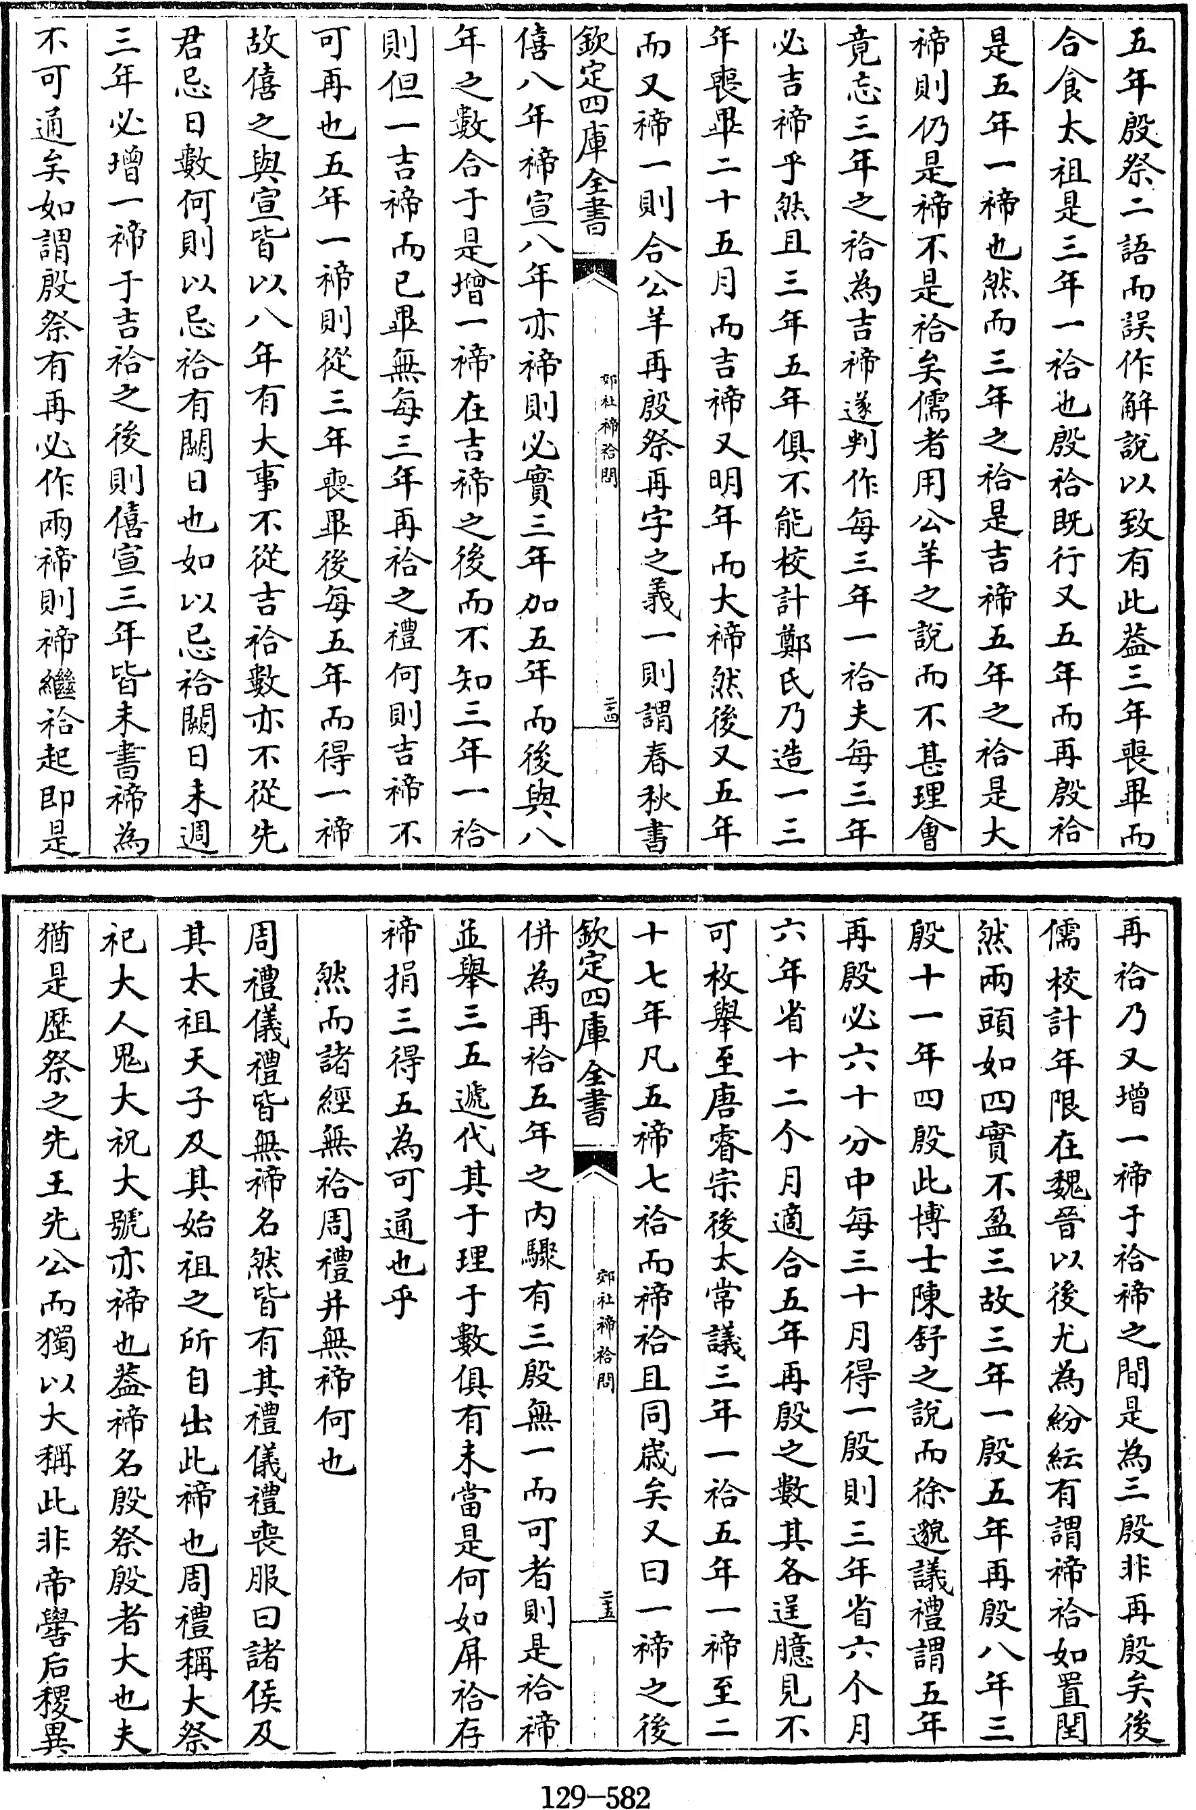 五年殷祭二語而誤作解說以致有此葢三年喪畢而
合食太祖是三年一祫也殷祫既行又五年而再殷祫
是五年一禘也然而三年之祫是吉禘五年之祫是大
禘則仍是禘不是祫矣儒者用公羊之說而不甚理會
竟忘三年之祫為吉禘遂判作每三年一祫夫每三年
必吉禘乎然且三年五年俱不能校計鄭氏乃造一三
年喪畢二十五月而吉禘又明年而大禘然後又五年
而又禘一則合公羊再殷祭再字之義一則謂春秋書
欽定四庫全書
郊社禘祫問
二十四
僖八年禘宣八年亦禘則必實三年加五年而後與八
年之數合于是增一禘在吉禘之後而不知三年一祫
則但一吉禘而已畢無每三年再祫之禮何則吉禘不
可再也五年一禘則從三年喪畢後每五年而得一禘
故僖之與宣皆以八年有大事不從吉祫數亦不從先
君忌日數何則以忌祫有闕日也如以忌祫闕日未週
三年必增一禘于吉祫之後則僖宣三年皆未書禘為
不可通矣如謂殷祭有再必作兩禘則禘繼祫起即是
再祫乃又增一禘于祫禘之間是為三殷非再殷矣後
儒校計年限在魏晉以後尤為紛紜有謂禘祫如置閏
然兩頭如四實不盈三故三年一殷五年再殷八年三
殷十一年四殷此博士陳舒之說而徐邈議禮謂五年
再殷必六十分中每三十月得一殷則三年省六个月
六年省十二个月適合五年再殷之數其各逞臆見不
可枚舉至唐睿宗後太常議三年一祫五年一禘至二
十七年凡五禘七祫而禘祫且同歲矣又曰一禘之後
欽定四庫全書
郊社禘祫問
二十五
併為再祫五年之內驟有三殷無一而可者則是祫禘
並舉三五遞代其于理于數俱有未當是何如屏祫存
禘捐三得五為可通也乎
然而諸經無祫周禮并無禘何也
周禮儀禮皆無禘名然皆有其禮儀禮喪服曰諸侯及
其太祖天子及其始祖之所自出此禘也周禮稱大祭
祀大人鬼大祝大號亦禘也葢禘名殷祭殷者大也夫
猶是歷祭之先王先公而獨以大稱此非帝嚳后稷異
129-582